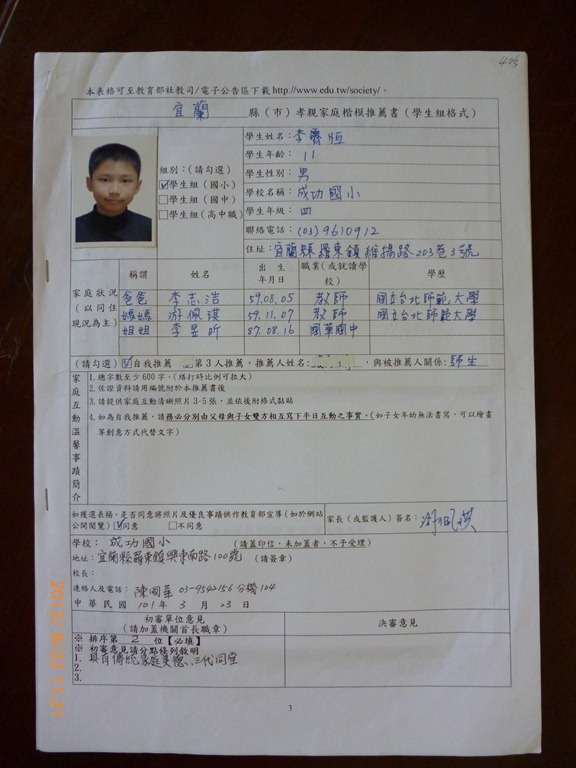 405
本表格可至教育部社教司/電子公告區下載http://www.edu.tw/society/。
宜蘭 縣(市)孝親家庭楷模推薦書(學生組格式)
組別:(請勾選)
☑學生組(國小)
□學生組(國中)
□學生組(高中職)
學生姓名:李 恒
學生年齡: 11
學生性別: 男
學校名稱:成功國小
學生年級: 四
聯絡電話:(03)9610912
住址:宜蘭縣羅東鎮維揚路203巷3號
家庭狀況(以同住現況為主)
稱謂 姓名 出生年月日 職業(或就讀學校) 學歷
爸爸 李志浩 59.08.05 教師 國立台北師範大學
媽媽 游佩琪 59.11.07 教師 國立台北師範大學
姐姐 李昱昕 87.08.16 國華國中
(請勾選)☑自我推薦 第3人推薦,推薦人姓名: ,與被推薦人關係:師生
家庭互動溫馨事蹟簡介
1.總字數至少600字。(繕打時比例可拉大)
2.佐證資料請用編號附於本推薦書後
3.請提供家庭互動清晰照片3-5張,並依後附格式黏貼
4.如為自我推薦,請務必分別由父母與子女雙方相互寫下平日互動之事實。(如子女年幼無法書寫,可以繪畫
等創意方式代替文字)
如獲選表揚,是否同意將照片及優良事蹟供作教育部宣導(如於網站
公開閱覽)☑同意 □不同意
家長(或監護人)簽名:游佩琪
學校: 成功國小 (請蓋印信,未加蓋者,不予受理)
地址:宜蘭縣羅東鎮興東南路100號 (請簽章)
校長:
連絡人及電話: 陳 03-9542156分機104
中華民國 101年 3 月 23日
初審單位意見
(請加蓋機關首長職章)
決審意見
※ 排序第 2 位【必填】
※ 初審意見請分點條列敘明
1.具有傳統家庭美德,三代同堂
2.
3.
3